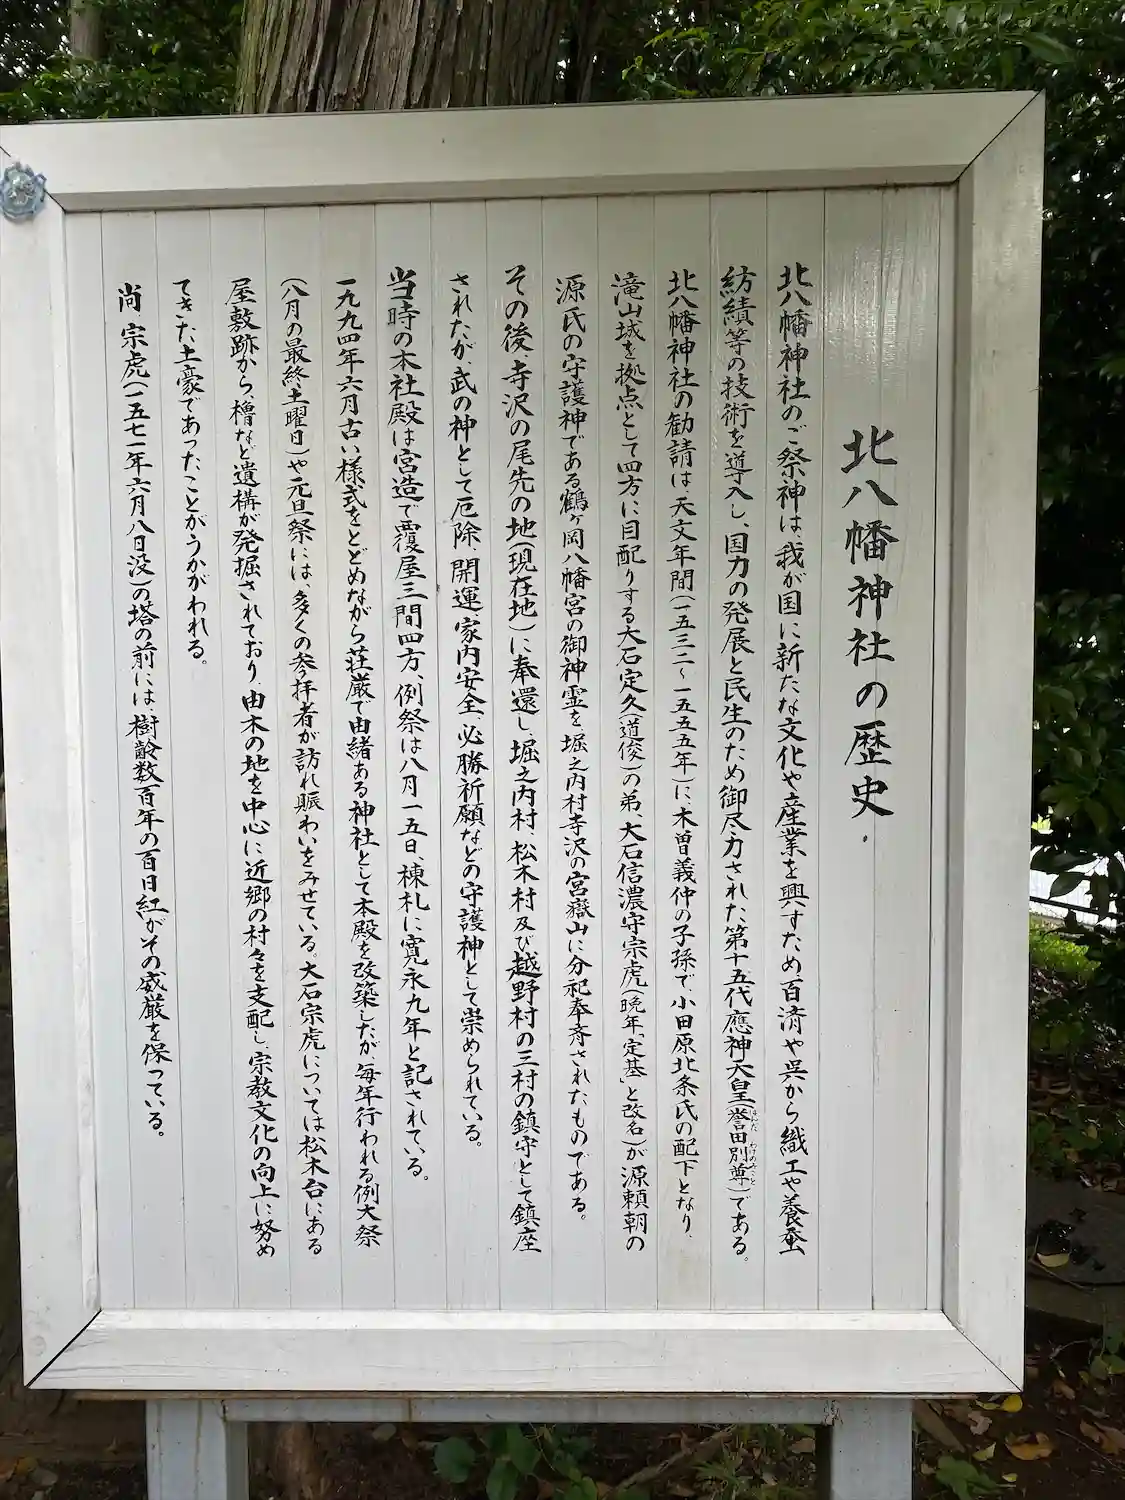 北八幡神社の歴史
北八幡神社のご祭神は、我が国に新たな文化や産業を興すため、百済や呉から織工や養蚕
紡績等の技術を導入し、国力の発展と民生のため御尽力された第十五代應神天皇(誉田別尊)である。
ほんだ わけのみこと
北八幡神社の勧請は、天文年間(一五三二~一五五五年)に、木曽義仲の子孫で、小田原北条氏の配下となり、
滝山城を拠点として四方に目配りする大石定久(道俊)の弟、大石信濃守宗虎(晩年「定基」と改名)が源頼朝の
源氏の守護神である鶴ヶ岡八幡宮の御神霊を、堀之内村寺沢の宮嶽山に分祀奉斉されたものである。
その後、寺沢の尾先の地(現在地)に奉還し、堀之内村、松木村及び越野村の三村の鎮守として鎮座
されたが武の神として厄除、開運、家内安全、必勝祈願などの守護神として崇められている。
当時の本社殿は宮造で覆屋三間四方、例祭は八月一五日、棟札に寛永九年と記されている。
一九九四年六月古い様式をとどめながら荘厳で由緒ある神社として本殿を改築したが、毎年行われる例大祭
(八月の最終土曜日)や元旦祭には、多くの参拝者が訪れ賑わいをみせている。大石宗虎については松木台にある
屋敷跡から、櫓など遺構が発掘されており、由木の地を中心に近郷の村々を支配し、宗教文化の向上に努め
てきた土豪であったことがうかがわれる。
尚 宗虎(一五七一年六月八日没)の塔の前には、樹齢数百年の百日紅がその威厳を保っている。